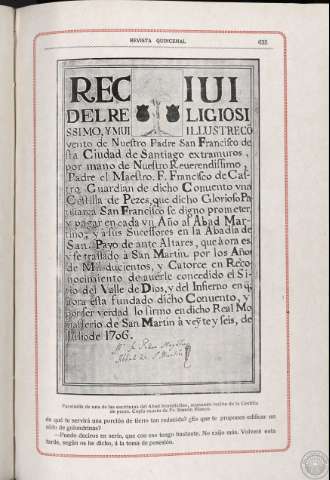 REVISTA QUINCENAL 635
RECIUI
DEL RELIGIOSI
SSIMO, Y MUI ILLUSTRE CÕ
vento de Nuestro Padre San Francisco de
sta Ciudad de Santiago extramuros,
por mano de Nuestro Reuerendissimo,
Padre el Maestro. F. Francisco de Cas
tro Guardian de dicho Conuento vna
Cestilla de Pezes, que dicho Glorioso Pa
triarza San Francisco se digno prometer,
y pagar en cada vn Año al Abad Mar
tino, y a sus Sucessores en la Abadia de
San Payo de ante Altares, que aora es
y se traslado a San Martin. por los Años
de Mil ducientos, y Catorce en Reco
nocimiento de auerle concedido el Si
tio del Valle de Dios, y del Infierno en q̃
aora esta fundado dicho Conuento, y
por ser verdad lo firmo en dicho Real Mo
nasterio de San Martin à veyte y seis, de
Julio de 1706.
Abbad de S. Martin
Facsímile de una de las escrituras del Abad benedictino, acusando recibo de la Cestilla
de peces. Copia exacta de Fr. Ramón Blanco.
de qué te servirá una porción de tierra tan reducida? ¿Es que te propones edificar un
nido de golondrinas?
—Puedo deciros en serio, que con eso tengo bastante. No exijo más. Volveré esta
tarde, según se ha dicho, á la toma de posesión.